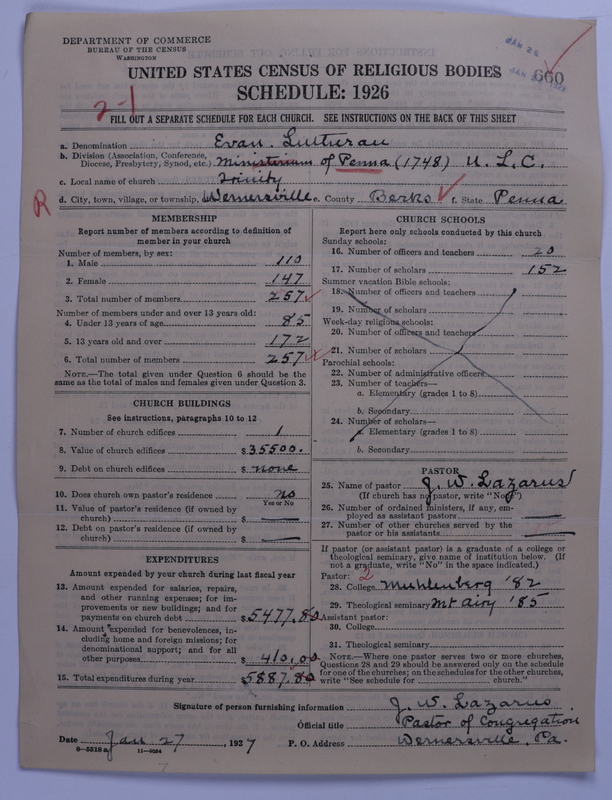 DEPARTMENT OF COMMERCE
BUREAU OF THE CENSUS
WASHINGTON
JAN 26
660
UNITED STATES CENSUS OF RELIGIOUS BODIES
SCHEDULE: 1926
2-1
FILL OUT A SEPARATE SCHEDULE FOR EACH CHURCH. SEE INSTRUCTIONS ON THE BACK OF THIS SHEET
a. Denomination Evan. Lutheran
b. Division (Association, Conference, Diocese, Presbytery, Synod, etc.) Ministerium of Penna (1748) U. L. C.
c. Local name of church Trinity
R
d. City, town, village, or township, Wernersville e. County Berks f. State Penna
MEMBERSHIP
Report number of members according to definition of
member in your church
Number of members, by sex:
1. Male 110
2. Female 147
3. Total number of members 257
Number of members under and over 13 years old:
4. Under 13 years of age 85
5. 13 years old and over 172
6. Total number of members 257
NOTE.—The total given under Question 6 should be
same as the total of males and females given under Question 3.
CHURCH BUILDINGS
See instructions, paragraphs 10 to 12
7. Number of church edifices 1
8. Value of church edifices $35500.
9. Debt on church edifices $none
10. Does church own pastor's residence no
Yes or No
11. Value of pastor's residence (if owned by
church) $ —
12. Debt on pastor's residence (if owned by
church) $ —
EXPENDITURES
Amount expended by your church during last fiscal year
13. Amount expended for salaries, repairs,
and other running expenses; for im-
provements or new buildings; and for
payments on church debt $5477.80
14. Amount expended for benevolences, in-
cluding home and foreign missions; for
denominational support; and for all
other purposes $410.00
15. Total expenditures during year $5887.80
CHURCH SCHOOLS
Report here only schools conducted by this church
Sunday schools:
16. Number of officers and teachers 20
17. Number of scholars 152
Summer vacation Bible schools:
18. Number of officers and teachers
19. Number of scholars
Week-day religious schools:
20. Number of officers and teachers
21. Number of scholars
Parochial schools:
22. Number of administrative officers
23. Number of teachers—
a. Elementary (grades 1 to 8)
b. Secondary
24. Number of scholars—
a. Elementary (grades 1 to 8)
b. Secondary
PASTOR
25. Name of pastor J. W. Lazarus
(If church has no pastor, write "No")
26. Number of ordained ministers, if any, em-
ployed as assistant pastors —
27. Number of other churches served by the
pastor or his assistants —
If pastor (or assistant pastor) is a graduate of a college or
theological seminary, give name of institution below. (If
not a graduate, write "No" in the space indicated.)
Pastor: 2
28. College Muhlenberg '82
29. Theological seminary Mt Airy '85
Assistant pastor:
30. College
31. Theological seminary
NOTE.—Where one pastor serves two or more churches,
Questions 28 and 29 should be answered only on the schedule
for one of the churches; on the schedules for the other churches,
write "See schedule for church."
Signature of person furnishing information J. W. Lazarus
Official title Pastor of Congregation
Date Jan 27, 1927 P. O. Address Wernersville, Pa.
8-5518a 11-9034